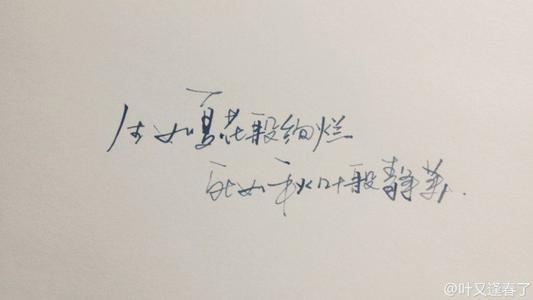 生如夏花般绚烂
死如秋叶般静美.
@叶又逢春了